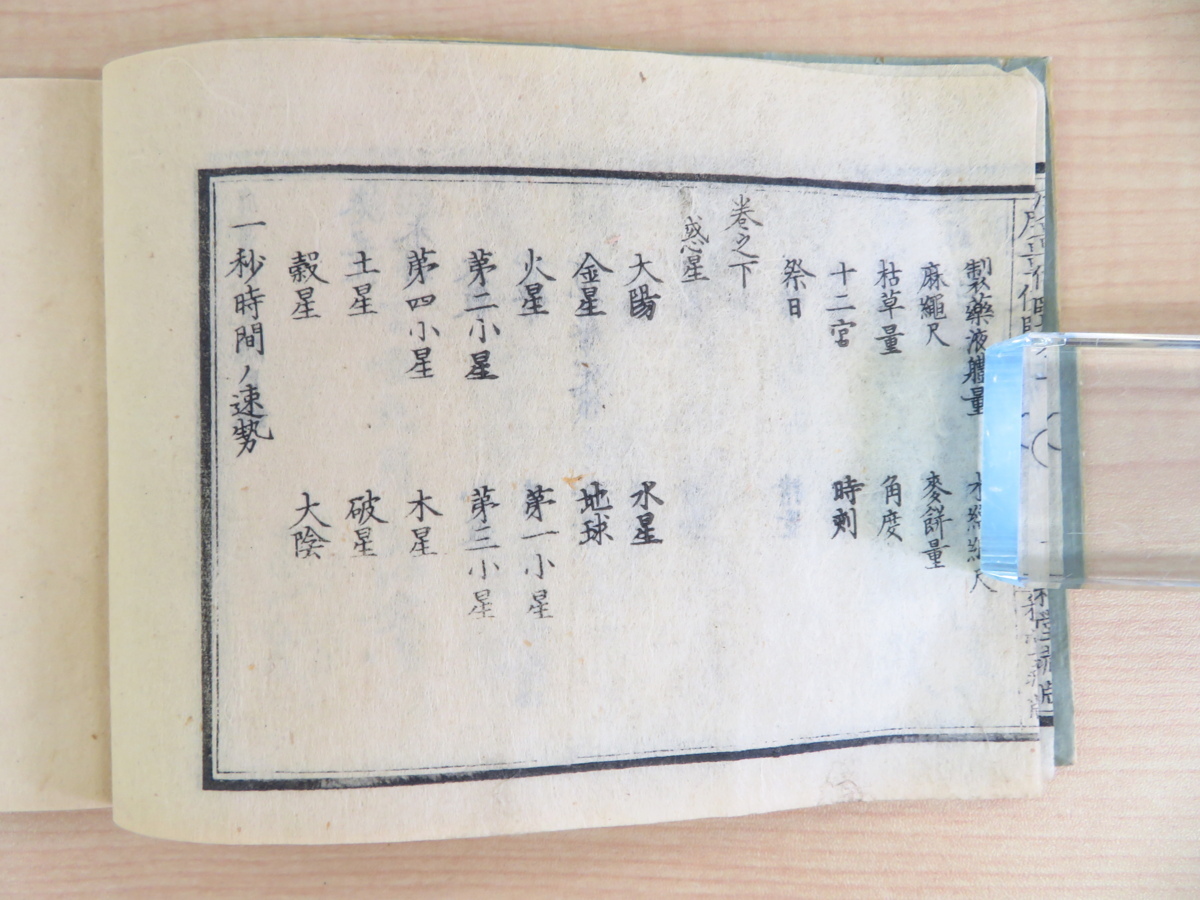 製藥液軆量
麻繩尺 麥餅量
枯草量 角度
十二宮 時刻
祭日
巻之下
惑星
大陽 水星
金星 地球
火星 第一小星
第二小星 第三小星
第四小星 木星
土星 破星
穀星 大陰
一秒時間ノ速勢